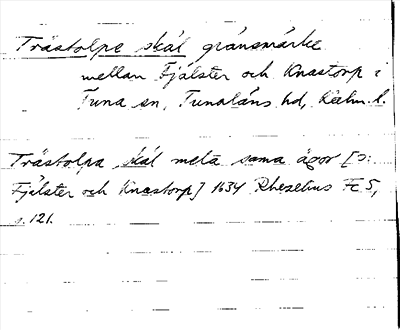 Trästolpe skäl gränsmärke
mellan Fjälster och Knastorp i
Tuna sn, Tunaläns hd, Kalm. l.
Trästolpa skäl meta sama ägor [ɔ:
Fjälster och Knastorp] 1634 Rhezelius Fc 5,
s. 121.